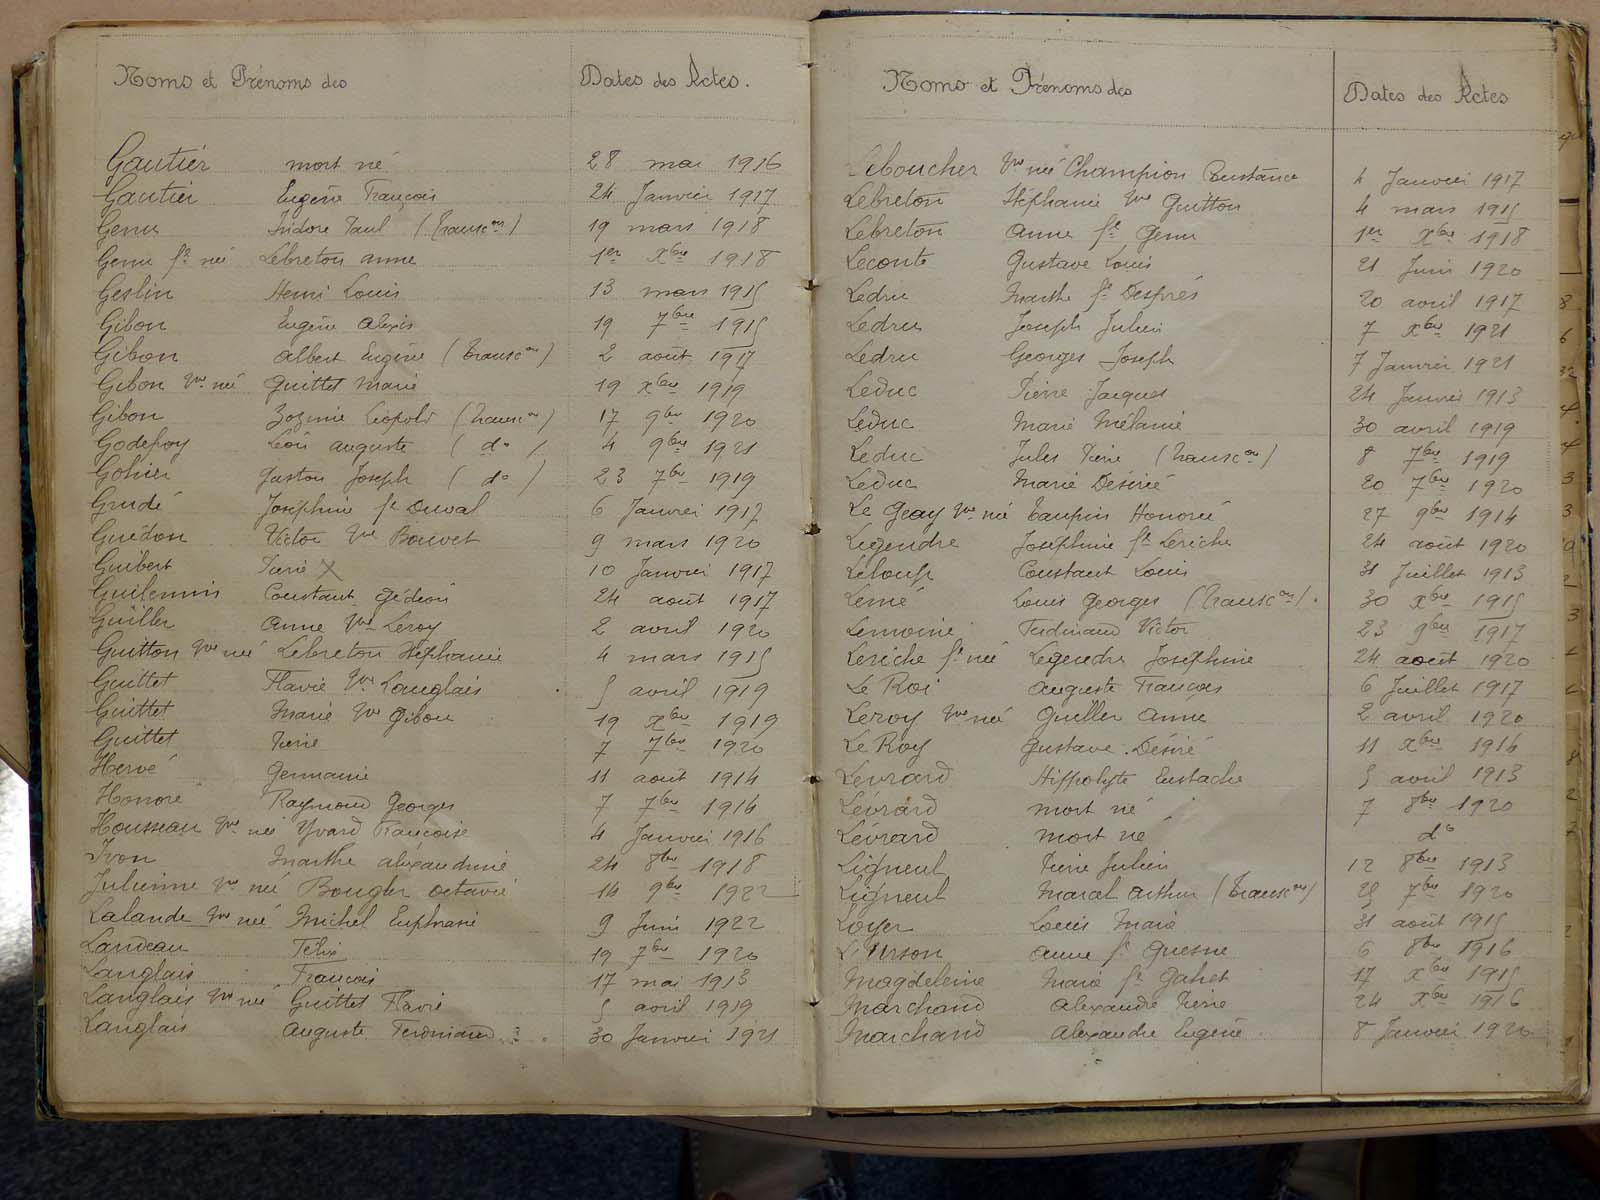 Noms et Prénoms des Dates des Actes.
Gautier mort né 28 mai 1916
Gautier Eugène François 24 Janvier 1917
Genu Isidore Paul (Transc on) 19 mars 1918
Genu fe née Lebreton anne 1er Xbre 1918
Geslin Henri Louis 13 mars 1915
Gibon Eugène Alexis 19 7bre 1915
Gibon Albert Eugène (Transc on) 2 août 1917
Gibon Vve née Guittet Marie 19 Xbre 1919
Gibon Zozime Léopold (Transc on) 17 9bre 1920
Godefroy Léon auguste (do) 4 9bre 1921
Gohier Gaston Joseph (do) 23 7bre 1919
Grudé Joséphine fe Duval 6 Janvier 1917
Guédon Victor Vve Bouvet 9 mars 1920
Guibert Pierre X 10 Janvier 1917
Guilemin Constant Gédéon 24 août 1917
Guiller Anne Vve Leroy 2 avril 1920
Guitton Vve née Lebreton Stéphanie 4 mars 1915
Guittet Flavie Vve Langlais 5 avril 1919
Guittet Marie Vve Gibon 19 Xbre 1919
Guittet Pierre 7 7bre 1920
Hervé Germanie 11 août 1914
Honoré Raymond Georges 7 7bre 1914
Housseau Vve née Yvard Françoise 4 Janvier 1916
Ivon Marthe alexandrine 24 8bre 1918
Julienne Vve née Bougler octavie 14 9bre 1922
Lalande Vve née Michel Euphrasie 9 Juin 1922
Landeau Félix 19 7bre 1920
Langlais François 17 mai 1913
Langlais Vve née Guittet Flavie 5 avril 1919
Langlais Auguste Ferdinand 30 Janvier 1921
Noms et Prénoms des Dates des Actes
Leboucher Vve née Champion Constance 4 Janvier 1917
Lebreton Stéphanie Vve Guitton 4 mars 1915
Lebreton Anne fe Genu 1er Xbre 1918
Leconte Gustave Louis 21 Juin 1920
Ledru Marthe fe Desprès 20 avril 1917
Ledru Joseph Julien 7 Xbre 1921
Ledru Georges Joseph 7 Janvier 1921
Leduc Pierre Jacques 24 Janvier 1913
Leduc Marie Mélanie 30 avril 1919
Leduc Jules Pierre (Transc on) 8 7bre 1919
Leduc Marie Désirée 20 7bre 1920
Le Geay Vve née Taupin Honorée 27 9bre 1914
Legendre Joséphine fe Leriche 24 août 1920
Leloup Constant Louis 31 Juillet 1913
Lemé Louis Georges (Transc on). 30 Xbre 1915
Lemoine Ferdinand Victor 23 9bre 1917
Leriche fe née Legendre Joséphine 24 août 1920
Le Roi Auguste François 6 Juillet 1917
Leroy Vve née Guiller Anne 2 avril 1920
Le Roy Gustave Désiré 11 Xbre 1914
Levrard Hippolyte Eustache 5 avril 1913
Lévrard mort né 7 8bre 1920
Lévrard mort né do
Ligneul Pierre Julien 12 8bre 1913
Ligneul Marcel Arthur (Transc on) 25 7bre 1920
Loyer Louis Marie 31 août 1915
L'Urson anne fe Quesne 6 8bre 1916
Magdeleine Marie fe Gahet 17 Xbre 1915
Marchand Alexandre Pierre 24 Xbre 1916
Marchand Alexandre Eugène 8 Janvier 1920